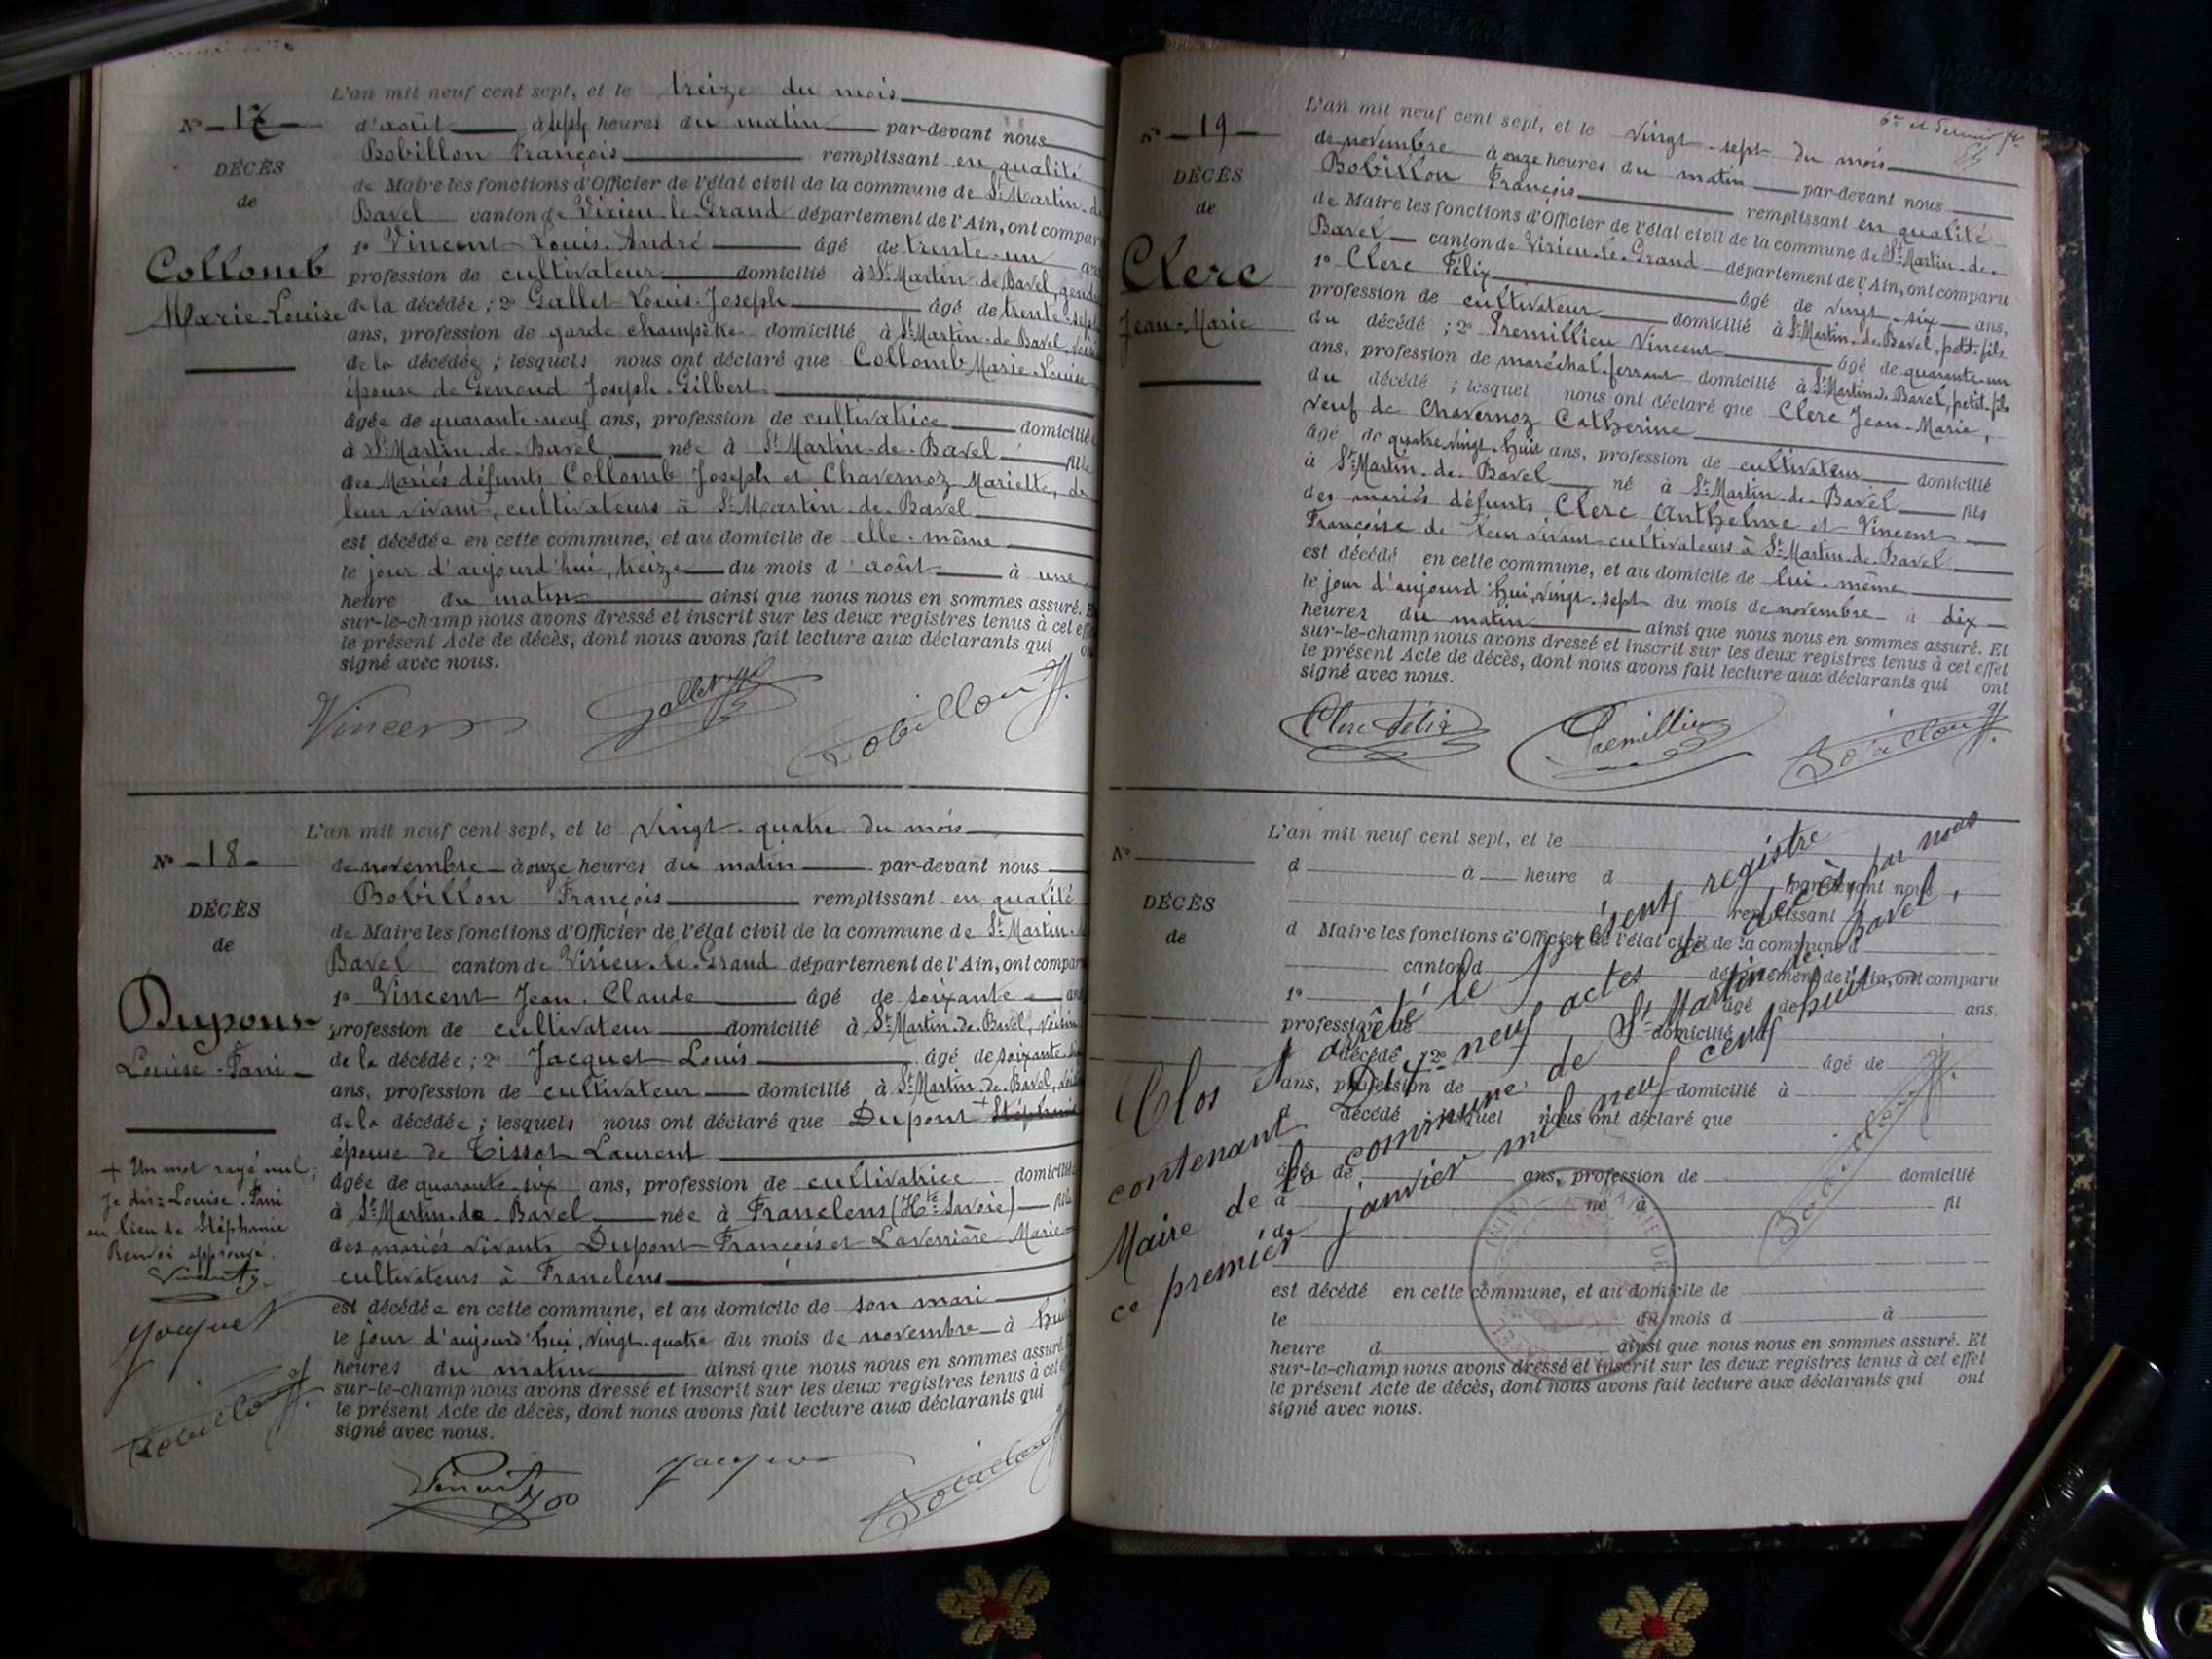 L'an mil neuf cent sept, et le treize du mois
N° 17
d'août à sept heures du matin par-devant nous
DÉCÈS
de
Bobillon François remplissant en qualité
de Maire les fonctions d'Officier de l'état civil de la commune de St Martin-de
Bavel canton de Virieu-le-Grand département de l'Ain, ont compar
1° Vincent Louis-André âgé de trente-un
Collomb
Marie-Louise
profession de cultivateur domicilié à St Martin-de-Bavel, gend
de la décédée ; 2° Gallet Louis-Joseph âgé de trente-sept
ans, profession de garde champêtre domicilié à St Martin-de-Bavel,
de la décédée ; lesquels nous ont déclaré que Collomb Marie-Louise
épouse de Genoud Joseph-Gilbert
âgée de quarante-neuf ans, profession de cultivatrice domiciliée
à St Martin-de-Bavel née à St Martin-de-Bavel fille
des Mariés défunts Collomb Joseph et Chavernoz Mariette, de
leur vivant, cultivateurs à St Martin-de-Bavel
est décédée en cette commune, et au domicile de elle-même
le jour d'aujourd'hui, treize du mois d'août à une
heure du matin ainsi que nous nous en sommes assuré. E
sur-le-champ nous avons dressé et inscrit sur les deux registres tenus à cet eff
le présent Acte de décès, dont nous avons fait lecture aux déclarants qui on
signé avec nous.
Vincent Gallet Bobillon
L'an mil neuf cent sept, et le vingt-quatre du mois
N° 18
de novembre à onze heures du matin par-devant nous
DÉCÈS
de
Bobillon François remplissant en qualité
de Maire les fonctions d'Officier de l'état civil de la commune de St Martin-d
Bavel canton de Virieu-le-Grand département de l'Ain, ont compar
1° Vincent Jean-Claude âgé de soixante an
Dupont
Louise-Fani
profession de cultivateur domicilié à St Martin-de-Bavel, voisin
de la décédée ; 2° Jacquet Louis âgé de soixante
ans, profession de cultivateur domicilié à St Martin-de-Bavel,
de la décédée ; lesquels nous ont déclaré que Dupont + Stéphanie
épouse de Tissot Laurent
âgée de quarante-six ans, profession de cultivatrice domicilié
à St Martin-de-Bavel née à Franclens (Hte Savoie) fille
des mariés vivants Dupont François et Laverrière Marie
cultivateurs à Franclens
est décédée en cette commune, et au domicile de son mari
le jour d'aujourd'hui, vingt-quatre du mois de novembre à hui
heures du matin ainsi que nous nous en sommes assuré.
sur-le-champ nous avons dressé et inscrit sur les deux registres tenus à cet
le présent Acte de décès, dont nous avons fait lecture aux déclarants qui
signé avec nous.
+ Un mot rayé nul ;
Je dis : Louise-Fani
au lieu de Stéphanie
Renvoi approuvé.
Vincent
Jacquet
Bobillon
Vincent Jacquet Bobillon
6e et dernier
L'an mil neuf cent sept, et le vingt-sept du mois
N° 19
de novembre à onze heures du matin par-devant nous
DÉCÈS
de
Bobillon François remplissant en qualité
de Maire les fonctions d'Officier de l'état civil de la commune de St Martin-de-
Bavel canton de Virieu-le-Grand département de l'Ain, ont comparu
1° Clerc Félix âgé de vingt-six ans,
Clerc
Jean-Marie
profession de cultivateur domicilié à St Martin-de-Bavel, petit-fils
du décédé ; 2° Premillieu Vincent âgé de quarante-un
ans, profession de maréchal-ferrant domicilié à St Martin-de-Bavel, petit-fils
du décédé ; lesquel nous ont déclaré que Clerc Jean-Marie,
veuf de Chavernoz Catherine
âgé de quatre-vingt-huit ans, profession de cultivateur domicilié
à St Martin-de-Bavel né à St Martin-de-Bavel fils
des mariés défunts Clerc Anthelme et Vincent
Françoise de leur vivant cultivateurs à St Martin-de-Bavel
est décédé en cette commune, et au domicile de lui-même
le jour d'aujourd'hui, vingt-sept du mois de novembre à dix
heures du matin ainsi que nous nous en sommes assuré. Et
sur-le-champ nous avons dressé et inscrit sur les deux registres tenus à cet effet
le présent Acte de décès, dont nous avons fait lecture aux déclarants qui ont
signé avec nous.
Clerc Félix Premillieu Bobillon
L'an mil neuf cent sept, et le
N°
d à heure d par-devant nous
DÉCÈS
de
remplissant
d Maire les fonctions d'Officier de l'état civil de la commune d
canton d département de l'Ain, ont comparu
1° âgé de ans,
profession de domicilié
décédé ; 2° âgé de
ans, profession de domicilié à
d décédé ; lesquel nous ont déclaré que
âgé de ans, profession de domicilié
à né à fil
de
est décédé en cette commune, et au domicile de
le du mois d à
heure d ainsi que nous nous en sommes assuré. Et
sur-le-champ nous avons dressé et inscrit sur les deux registres tenus à cet effet
le présent Acte de décès, dont nous avons fait lecture aux déclarants qui ont
signé avec nous.
Clos et arrêté le présent registre
contenant Dix-neuf actes de décès, par nous
Maire de la commune de St Martin-de-Bavel,
ce premier janvier mil neuf cent huit
Bobillon
MAIRIE DE BAVEL (AIN)